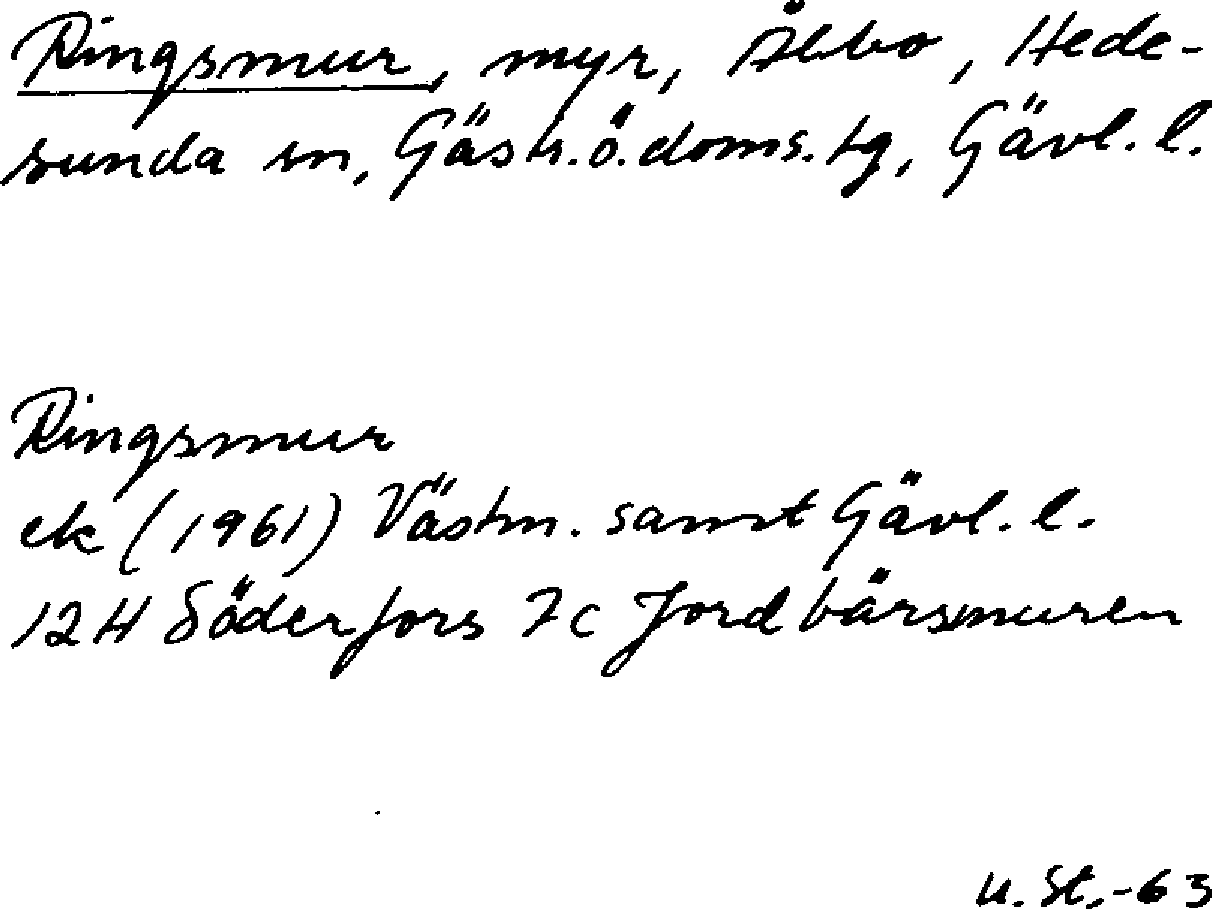 Ringsmur, myr, Ålbo, Hede-
sunda sn, Gästr.ö.doms.tg, Gävl. l.
Ringsmur
ek (1961) Västm. samt Gävl. l.
12H Söderfors 7c Jordbärsmuren
U. St. -63